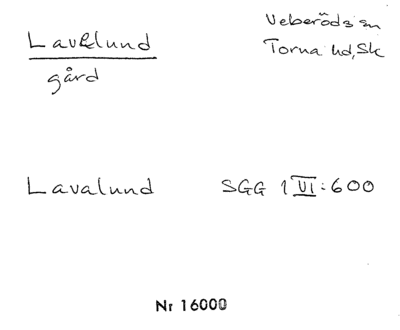 Lavelund
gård
Veberöds sn
Torna hd, Sk
Lavalund SGG 1 VI:600
Nr 16000